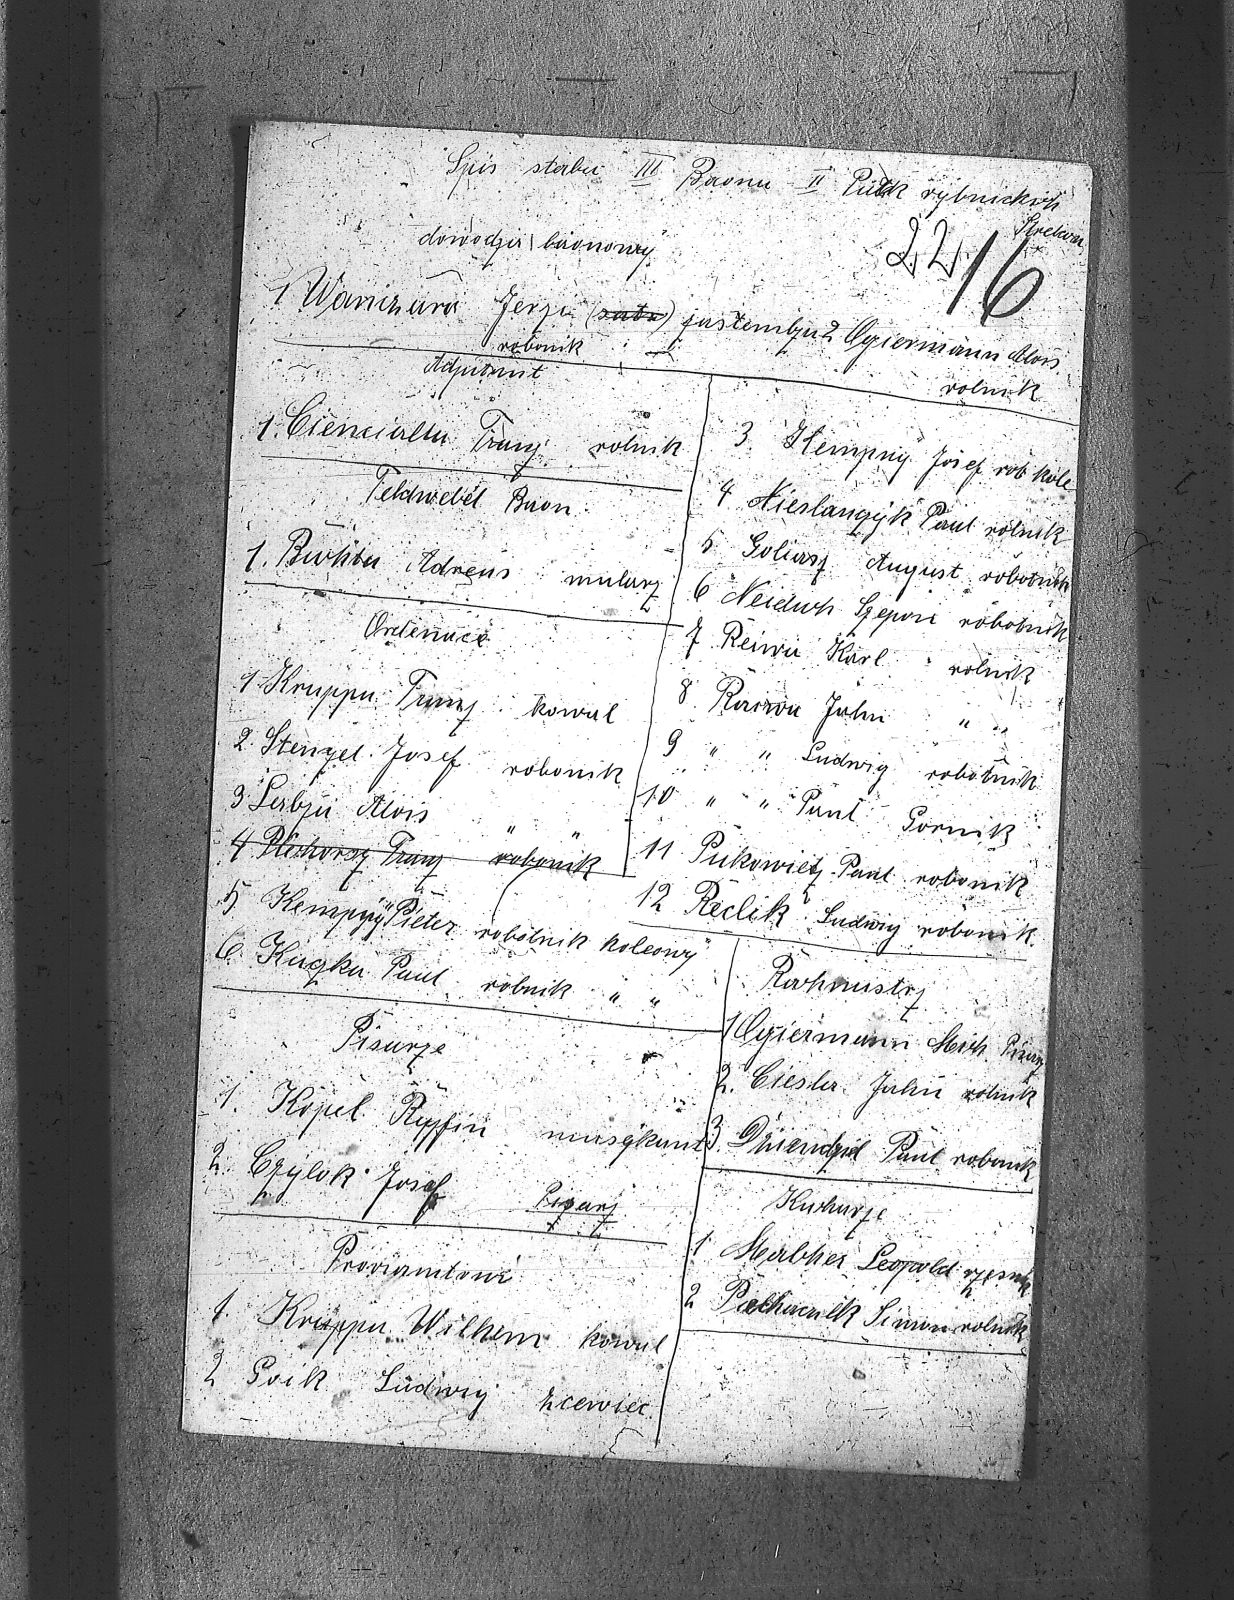 Spis stabu III Baonu II Pułk rybnickich
Strelcow
22 16
dowodzia baonowy
1 Wanizura Jerzi jastembzu
robonik
2 Ogiermann Alois
rolnik
Adjutant
1. Cienciallu Franz rolnik
Feldwebel Baon
1. Buchta Adreus mularz
Ordenace
1 Kruppu Franz kowal
2. Stenzel Josef robonik
3 Serbzu Alois " "
4 Plichorsz Franz robonik
5 Kempny Pieter robotnik koleowy
6 Kuzka Paul rolnik " "
Pisarze
1. Kopel Ryffin musykant
2. Czylok Josef Pisarz
Prowiamtowi
1. Kruppu Wilhem kowal
2 Goik Ludwig scewiec
3 Kempny Josef rob kole
4 Nieslanzyk Paul rolnik
5 Goliasz August robotnik
6 Neiduch Szepon robotnik
7 Reiwu Karl rolnik
8 Raiwa Jahn " "
9 " " Ludwig robotnik
10 " " Paul Gornik
11 Pukowietz Paul robonik
12 Reclik Ludwig robonik
Rachmistrz
1 Ogiermann Mich Pisarz
2. Ciesla Jahn rolnik
3. Dziendziel Paul robonik
Kucharze
1 Malcher Leopold rzesnik
2 Simon rolnik